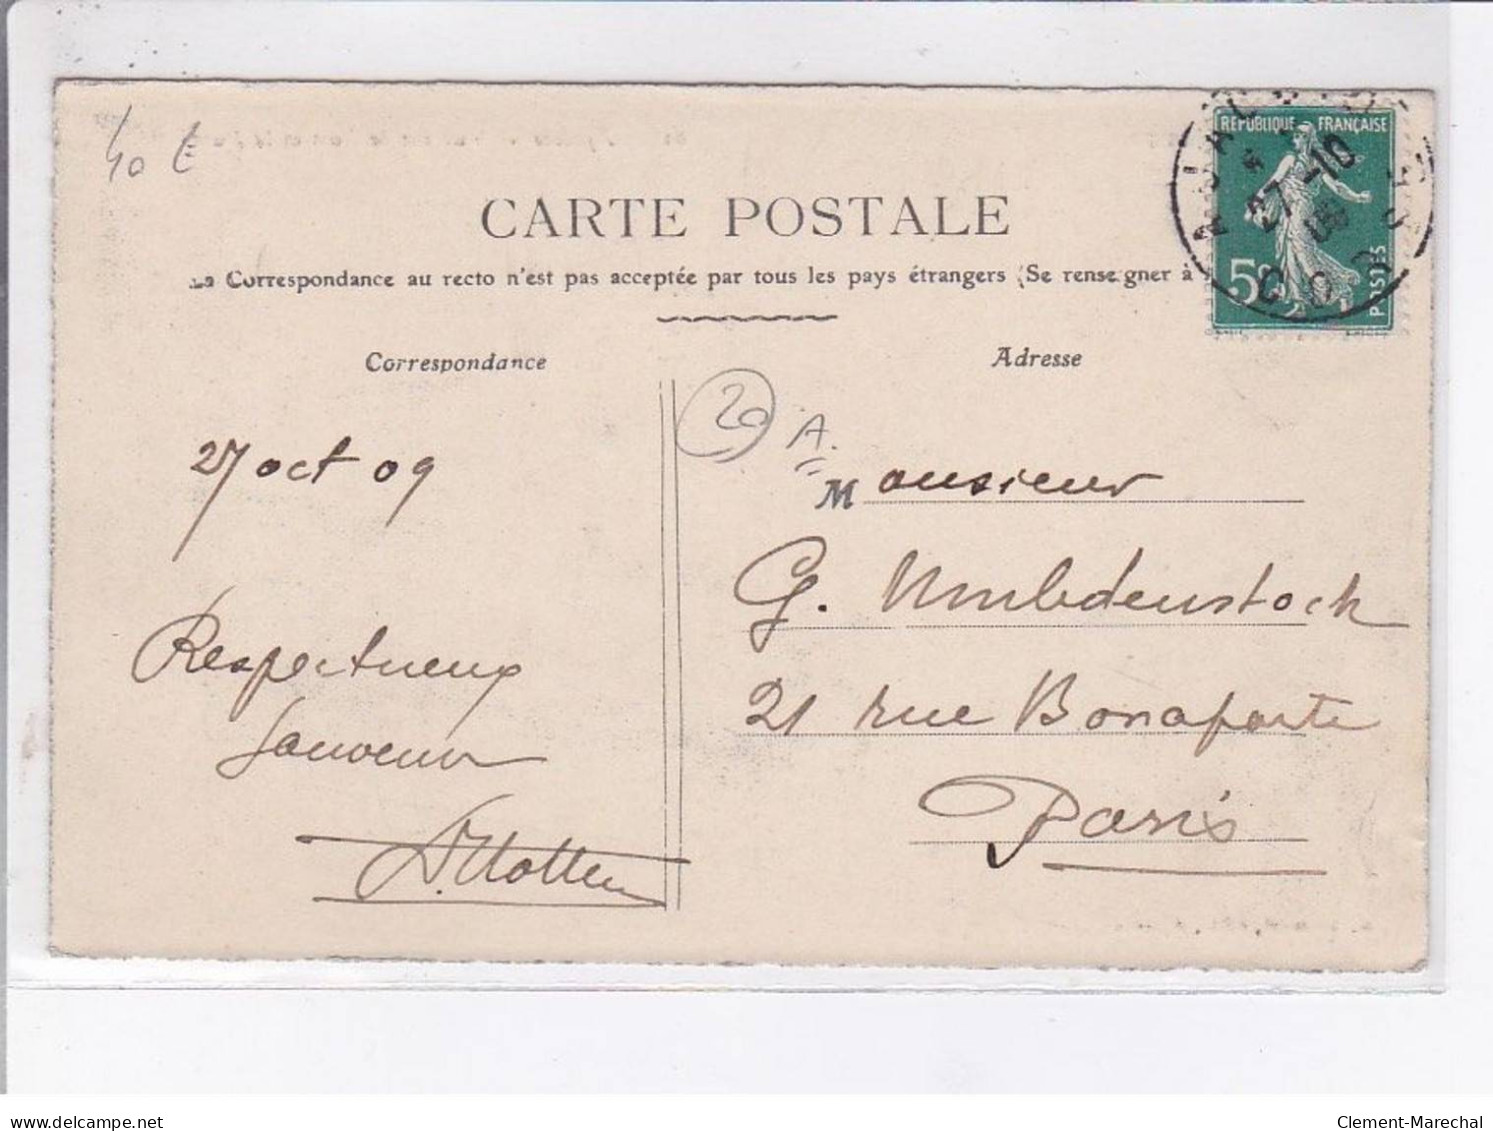 40 €
CARTE POSTALE
La Correspondance au recto n'est pas acceptée par tous les pays étrangers (Se renseigner à
RÉPUBLIQUE FRANÇAISE
27-10
09
5c
POSTES
Correspondance
Adresse
20
A.
27 oct 09
Monsieur
G. Umbdenstock
21 rue Bonaparte
Paris
Respectueux
Souvenir
delcampe.net
Clement-Marechal